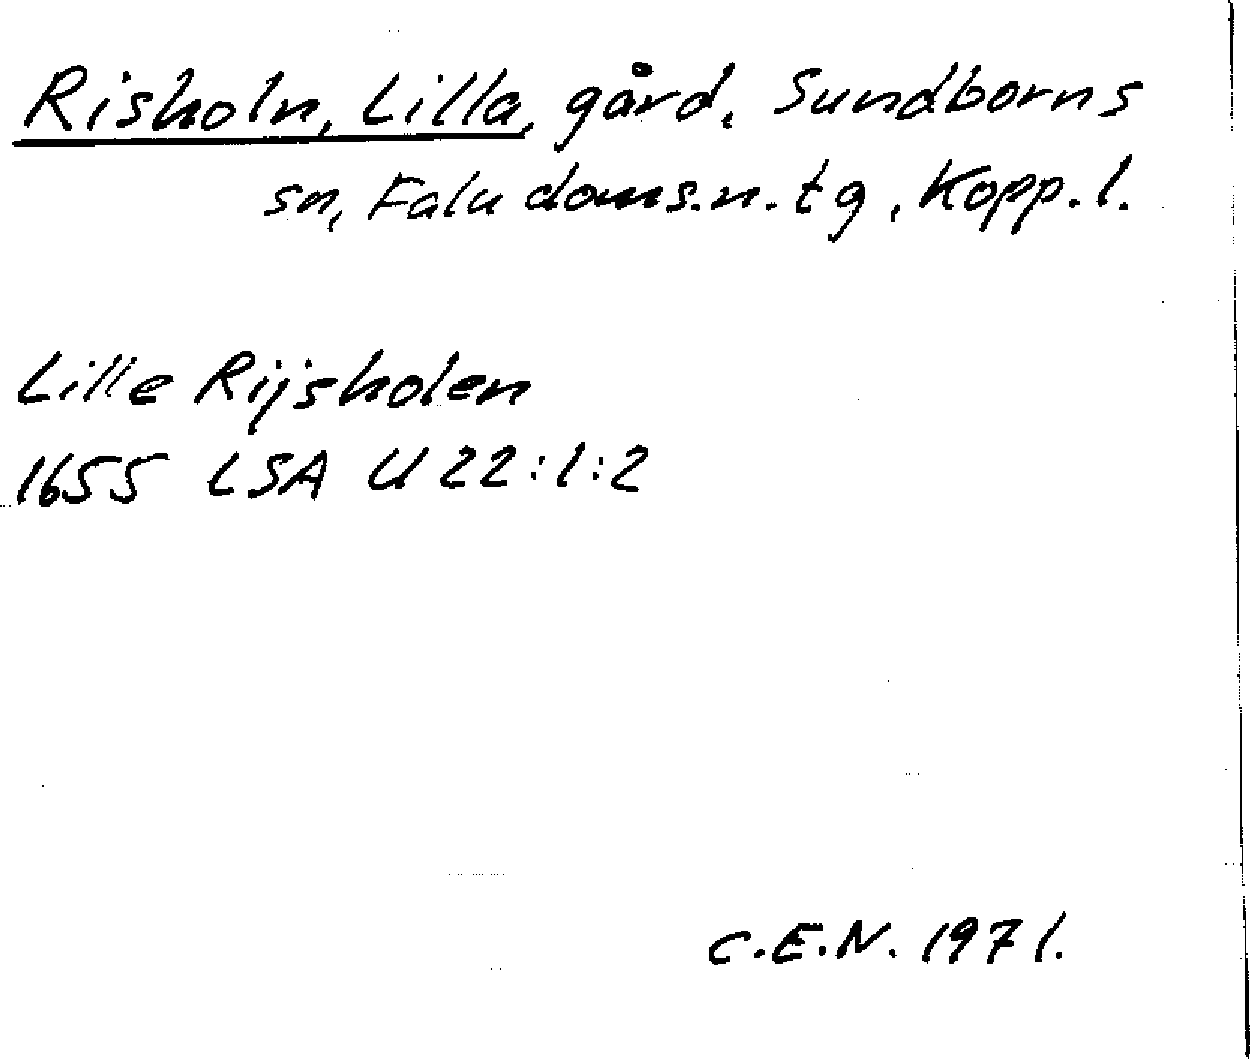 Risholn, Lilla, gård, Sundborns
sn, Falu doms.n. tg, Kopp. l.
Lille Rijsholen
1655 LSA U 22:1:2
C.E.N. 1971.